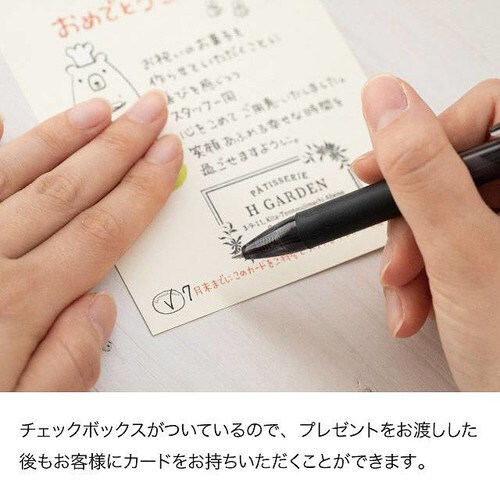 おめでとうご
お祝いのお菓子を
作らせていただくことに
喜びを感じつつ
スタッフ一同
心をこめてご用意いたしました。
笑顔あふれる幸せな時間を
過ごせますように。
PÂTISSERIE
H GARDEN
3-9-11, Kita-Tennoujimachi Abeno
7月末までにこのカードをご持
チェックボックスがついているので、プレゼントをお渡しした
後もお客様にカードをお持ちいただくことができます。